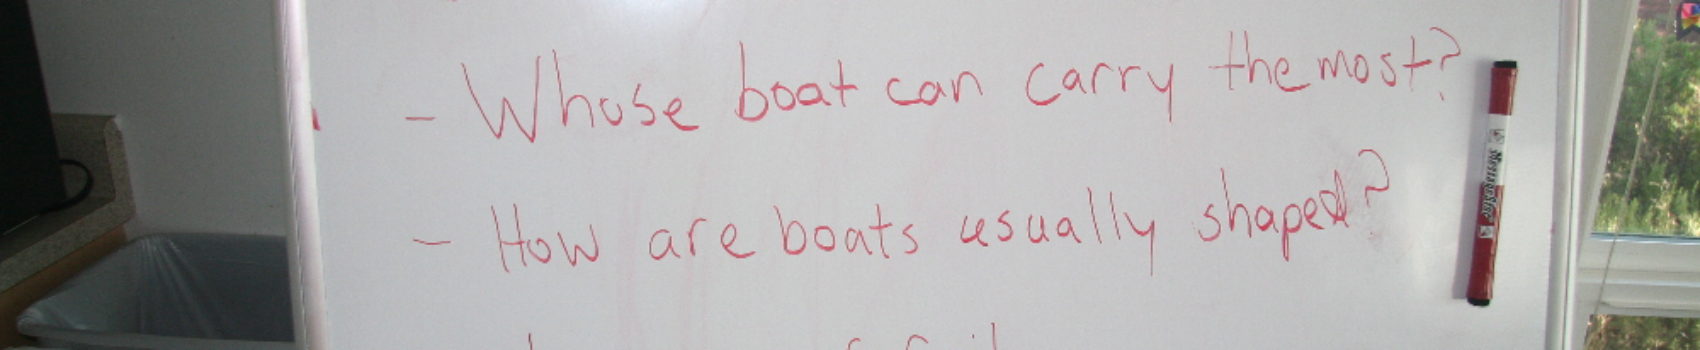 - Whose boat can carry the most?
- How are boats usually shaped?